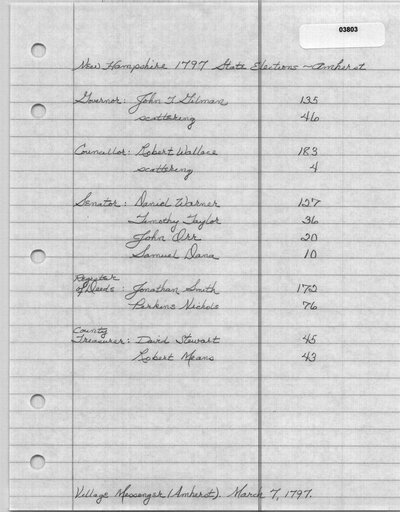 03803
New Hampshire 1797 State Elections - Amherst
Governor: John T Gilman 135
scattering 46
Councillor: Robert Wallace 183
scattering 4
Senator: Daniel Warner 127
Timothy Taylor 36
John Orr 20
Samuel Dana 10
Register
of Deeds: Jonathan Smith 172
Perkins Nichols 76
County
Treasurer: David Stewart 45
Robert Means 43
Village Messenger (Amherst). March 7, 1797.